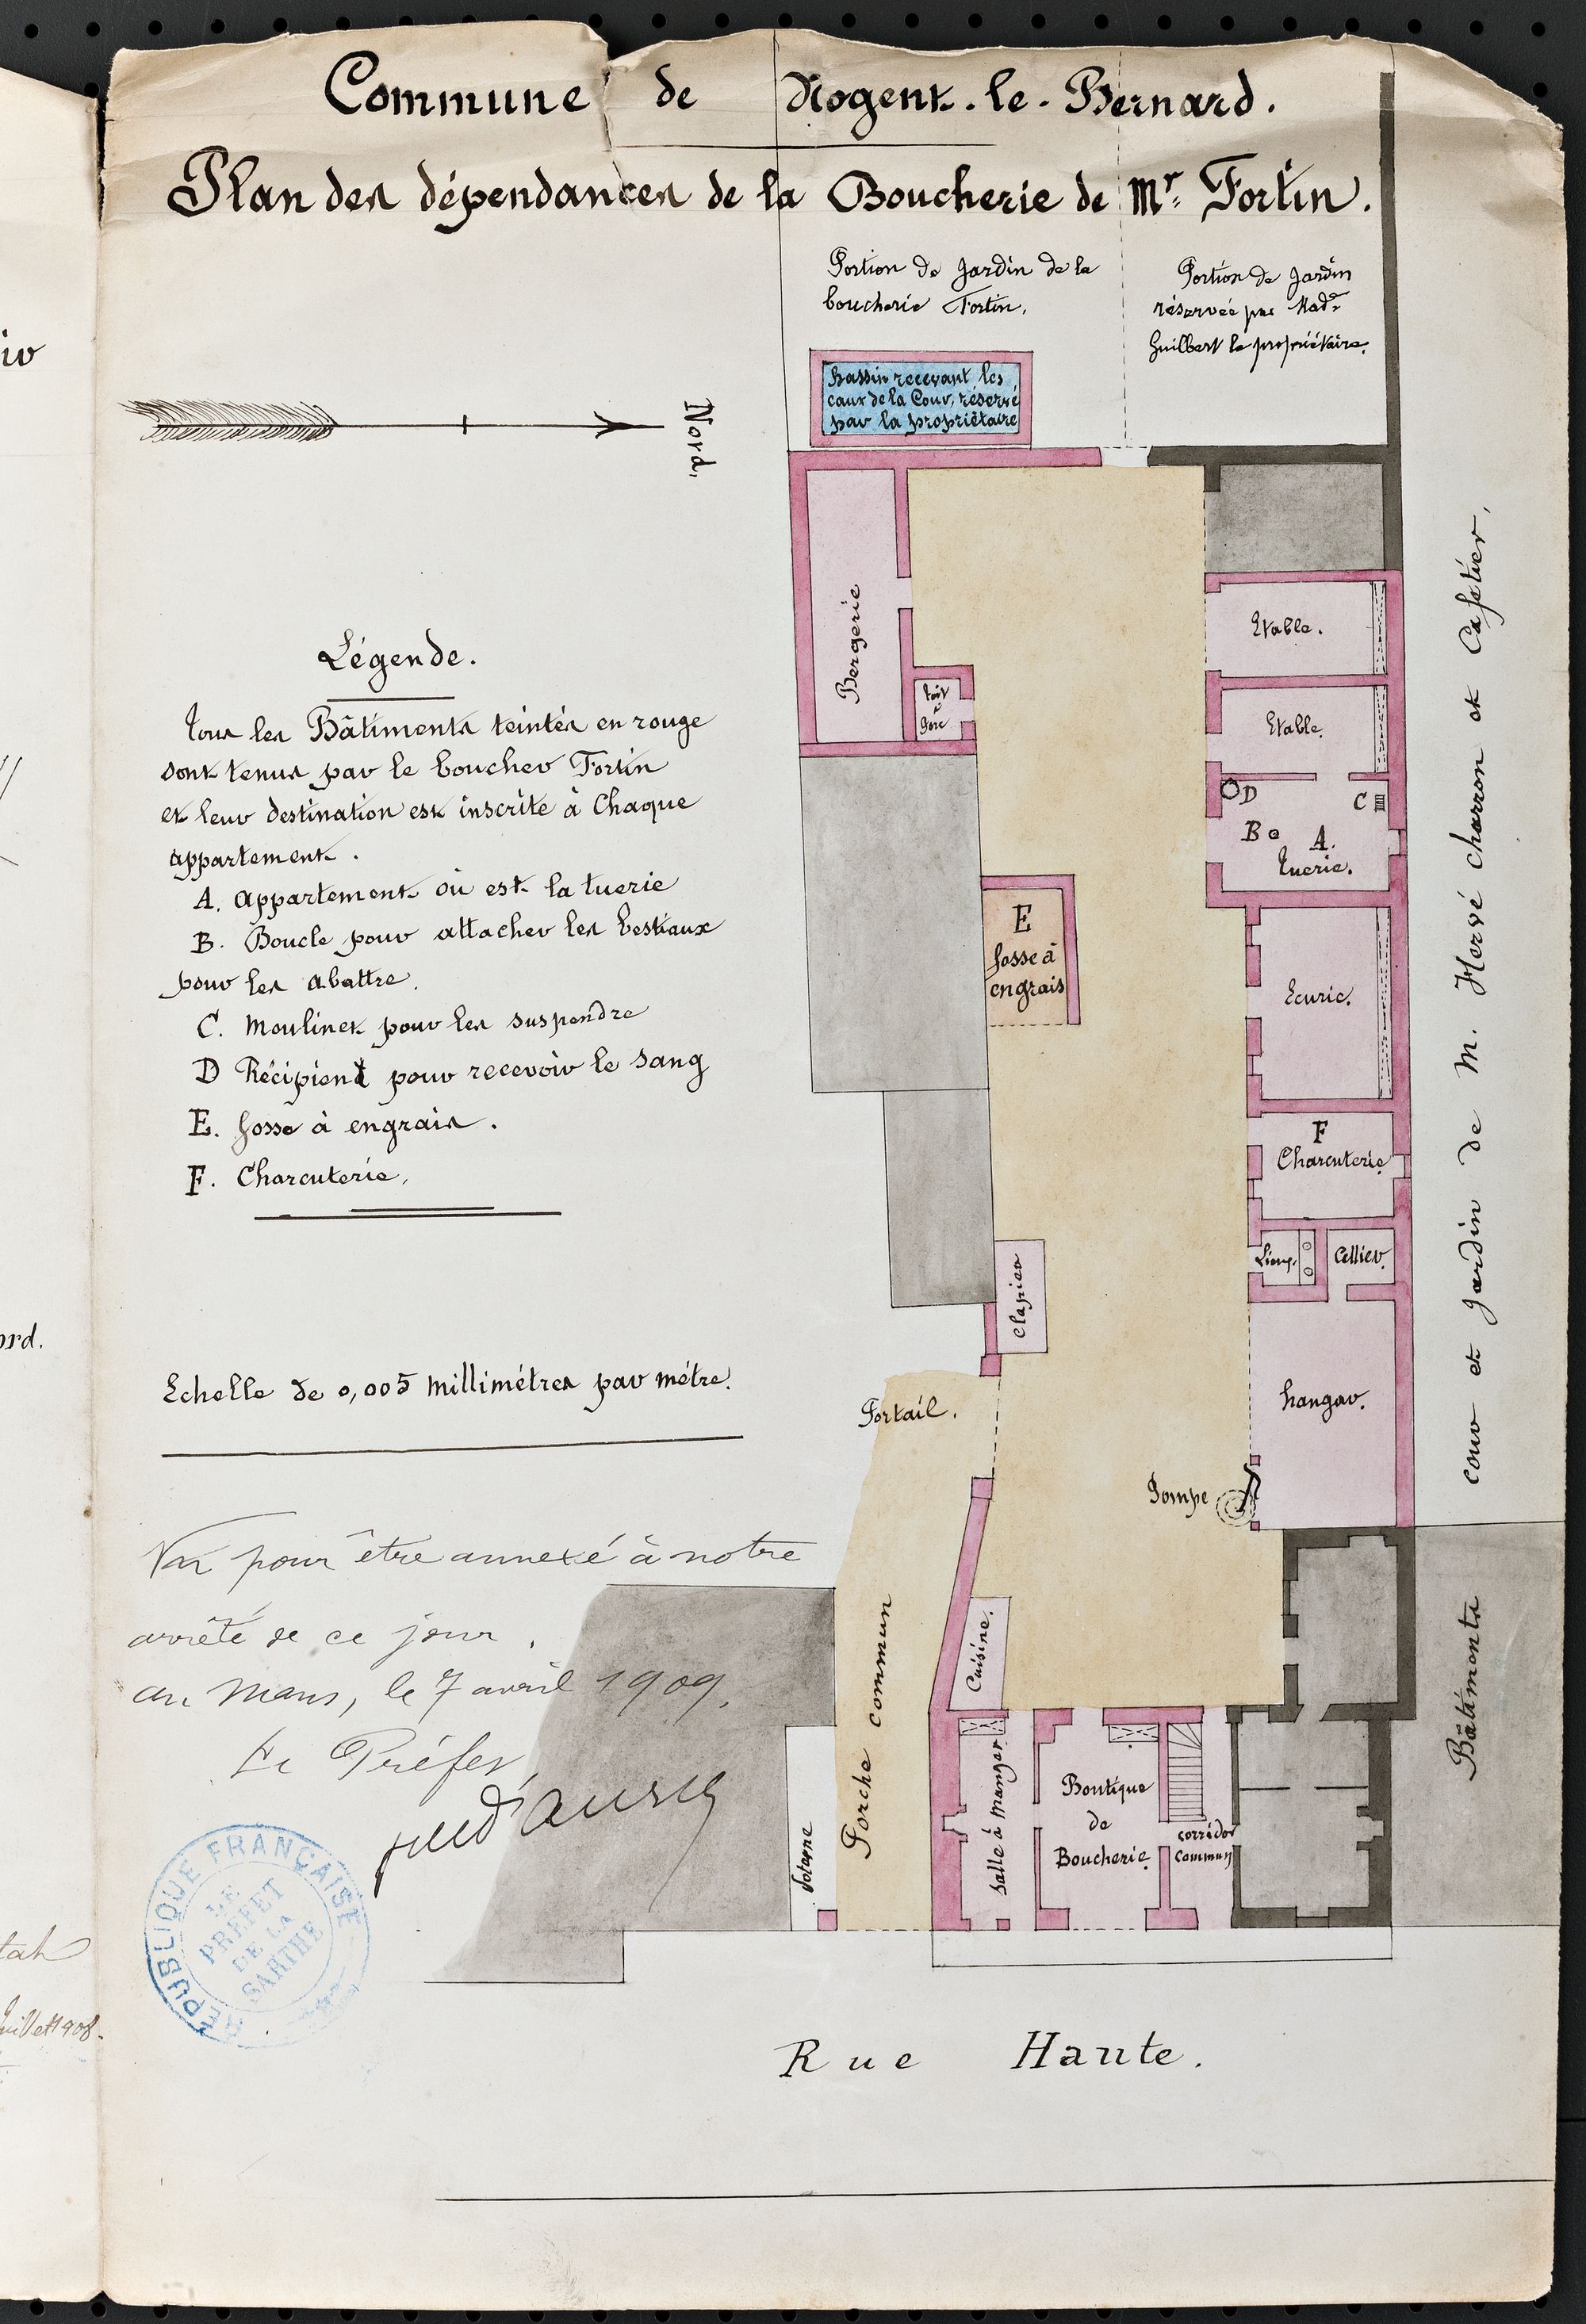 Commune de Nogent-le-Bernard.
Plan des dépendances de la Boucherie de Mr. Fortin.
Portion de Jardin de la
boucherie Fortin.
Portion de Jardin
réservée par Made
Guilbert la propriétaire.
bassin recevant les
eaux de la Cour, réservé
par la propriétaire
Nord.
Bergerie
toit
à
porc
Etable.
Etable.
D
C
B
A.
tuerie.
E
fosse à
engrais
Ecurie.
F
Charcuterie
Cellier.
Clapier
hangar.
Portail.
Pompe
Cuisine.
Porche commun
Salle à manger
Boutique
de
Boucherie.
corridor
commun
Bâtiments
cour et jardin de M. Hervé charron et Cafetier.
Rue Haute.
Légende.
Tous les Bâtiments teintés en rouge
sont tenus par le boucher Fortin
et leur destination est inscrite à Chaque
appartement.
A. appartement où est la tuerie
B. Boucle pour attacher les bestiaux
pour les abattre.
C. Moulinet pour les suspendre
D Récipient pour recevoir le sang
E. fosse à engrais.
F. Charcuterie.
Echelle de 0,005 millimétres par métre.
Vu pour être annexé à notre
arrêté de ce jour.
au Mans, le 7 avril 1909.
Le Préfet
RÉPUBLIQUE FRANÇAISE
LE
PRÉFET
DE LA
SARTHE
ord.
juillet 1908.